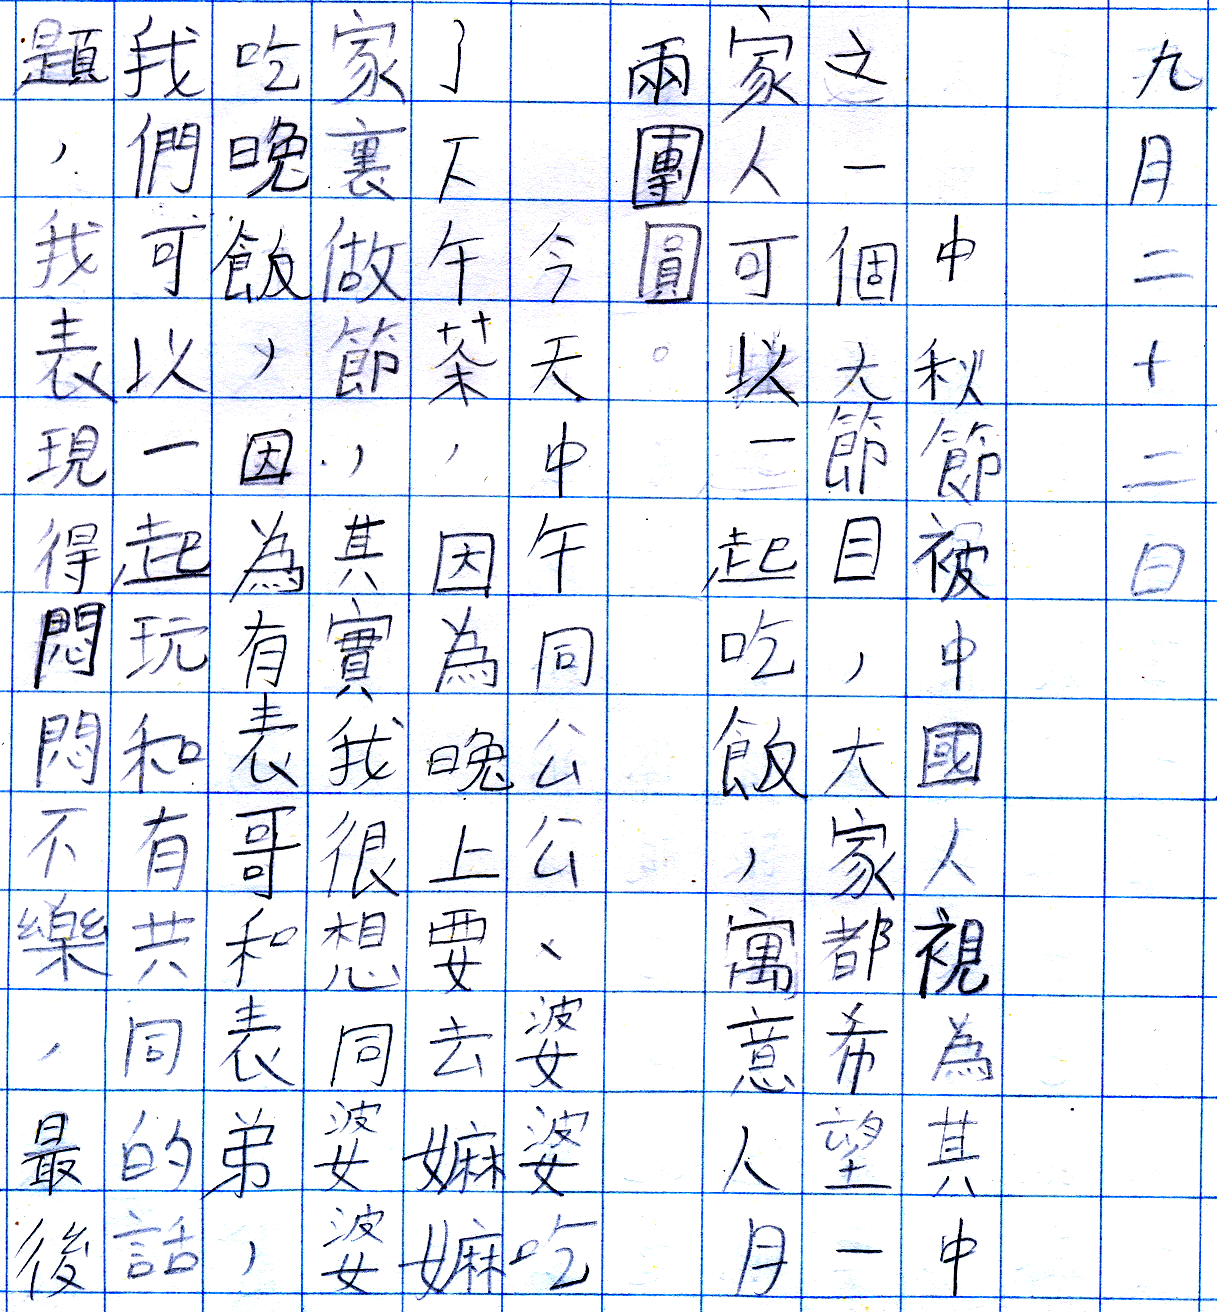 九月二十二日
中秋節被中國人視為其中
之一個大節目，大家都希望一
家人可以一起吃飯，寓意人月
兩團圓。
今天中午同公公、婆婆吃
了下午茶，因為晚上要去嫲嫲
家裏做節，其實我很想同婆婆
吃晚飯，因為有表哥和表弟，
我們可以一起玩和有共同的話
題，我表現得悶悶不樂，最後